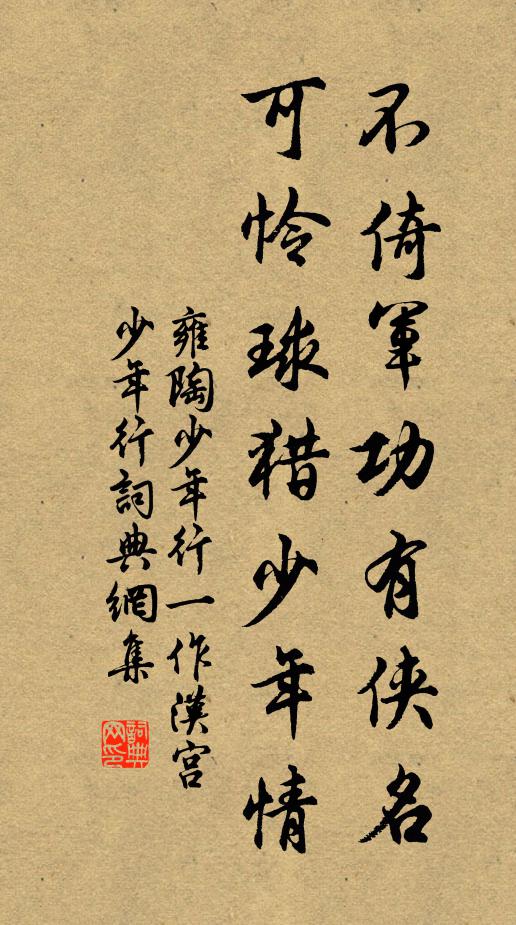 不倚軍功有俠名
可怜球猎少年情
雍陶少年行一作漢宮
少年行詞典網集
詞典网印